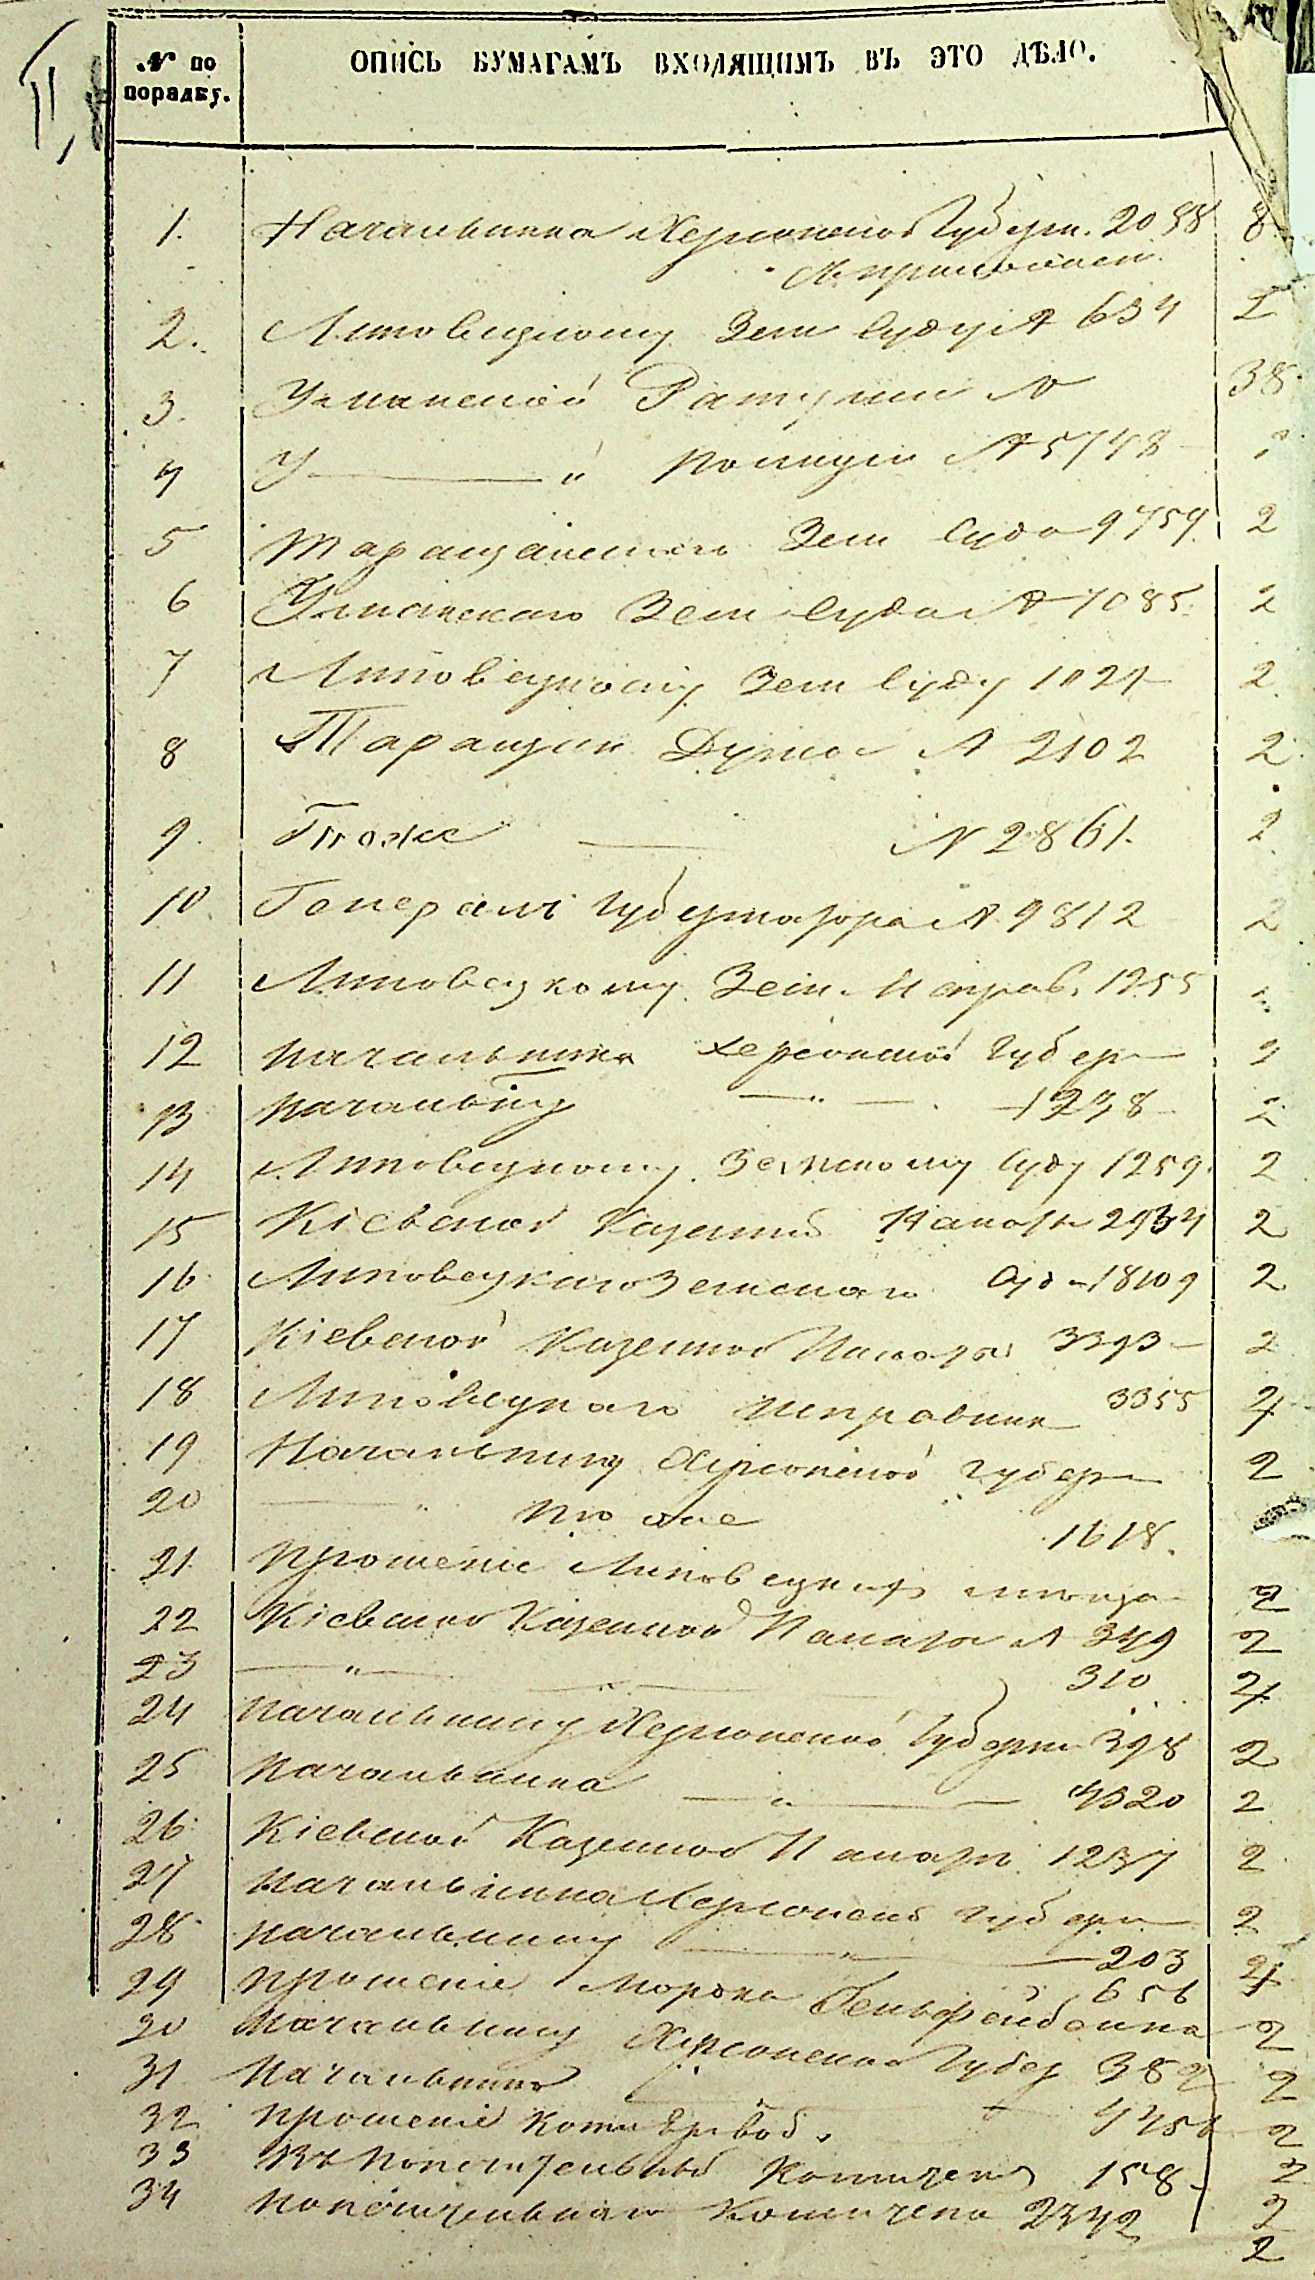 № по порядку. ОПИСЬ БУМАГАМЪ ВХОДЯЩИМЪ ВЪ ЭТО ДѢЛО.
1. Начальника Херсонской Губерн. 2088 8
2. Липовецкому Зем Суду № 634 2
3. Уманской Ратуши № 38
4 У—— " Полиціи № 5748
5 Таращанскаго Зем Суда 9759 2
6 Уманскаго Зем Суда № 7085 2
7 Липовецкому Зем Суду 1027 2
8 Таращан Думы № 2102 2
9. Тоже —— № 2861. 2
10 Генералъ Губернатора № 9812 2
11 Липовецкому Зем. Исправ. 1255
12 Начальника Херсонской Губер 2
13 Начальнику — " — 1238 2
14 Липовецкому Земскому Суду 1259. 2
15 Кіевской Казенной Палаты 2934 2
16 Липовецкаго Земскаго Суд 18109 2
17 Кіевской Казенной Палаты 3393 2
18 Липовецкаго Исправник 3355 4
19 Начальнику Херсонской Губер 2
20 —— " то же " 1618.
21 Прошеніе Липовецкихъ 2
22 Кіевской Казенной Палаты № 349 2
23 — " — 310 4
24 Начальнику Херсонской Губерн 398 2
25 Начальника — " — 4520 2
26 Кіевской Казенной Палаты 1237 2
27 Начальника Херсонской Губерн 2
28 Начальнику — " — 203 4
29 Прошеніе Мордка 656 2
30 Начальнику Херсонской Губер 382 2
31 Начальника 2
32 Прошеніе 2
33 Въ Попечительный Комитетъ 158 2
34 Попечительнаго Комитета 2342 2